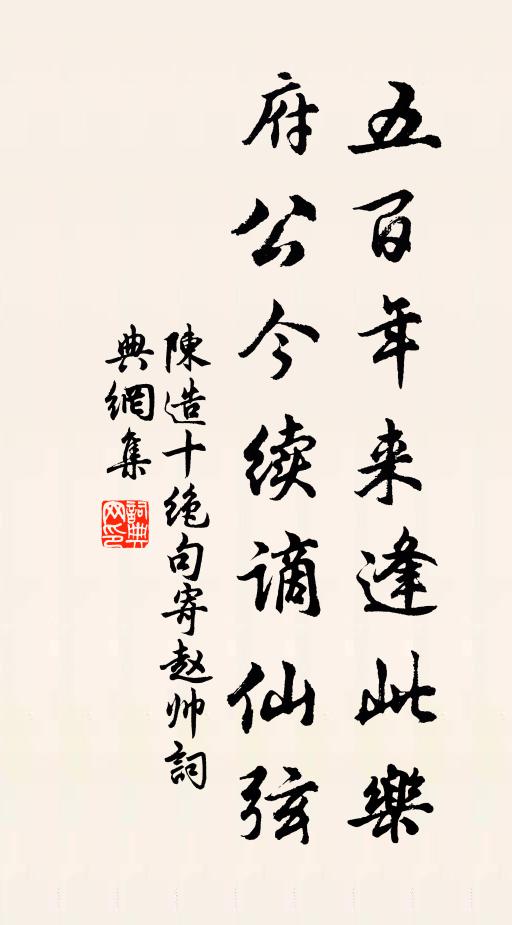 五百年来逢此樂
府公今续谪仙弦
陳造十绝句寄赵帅詞
典網集
詞典
网印